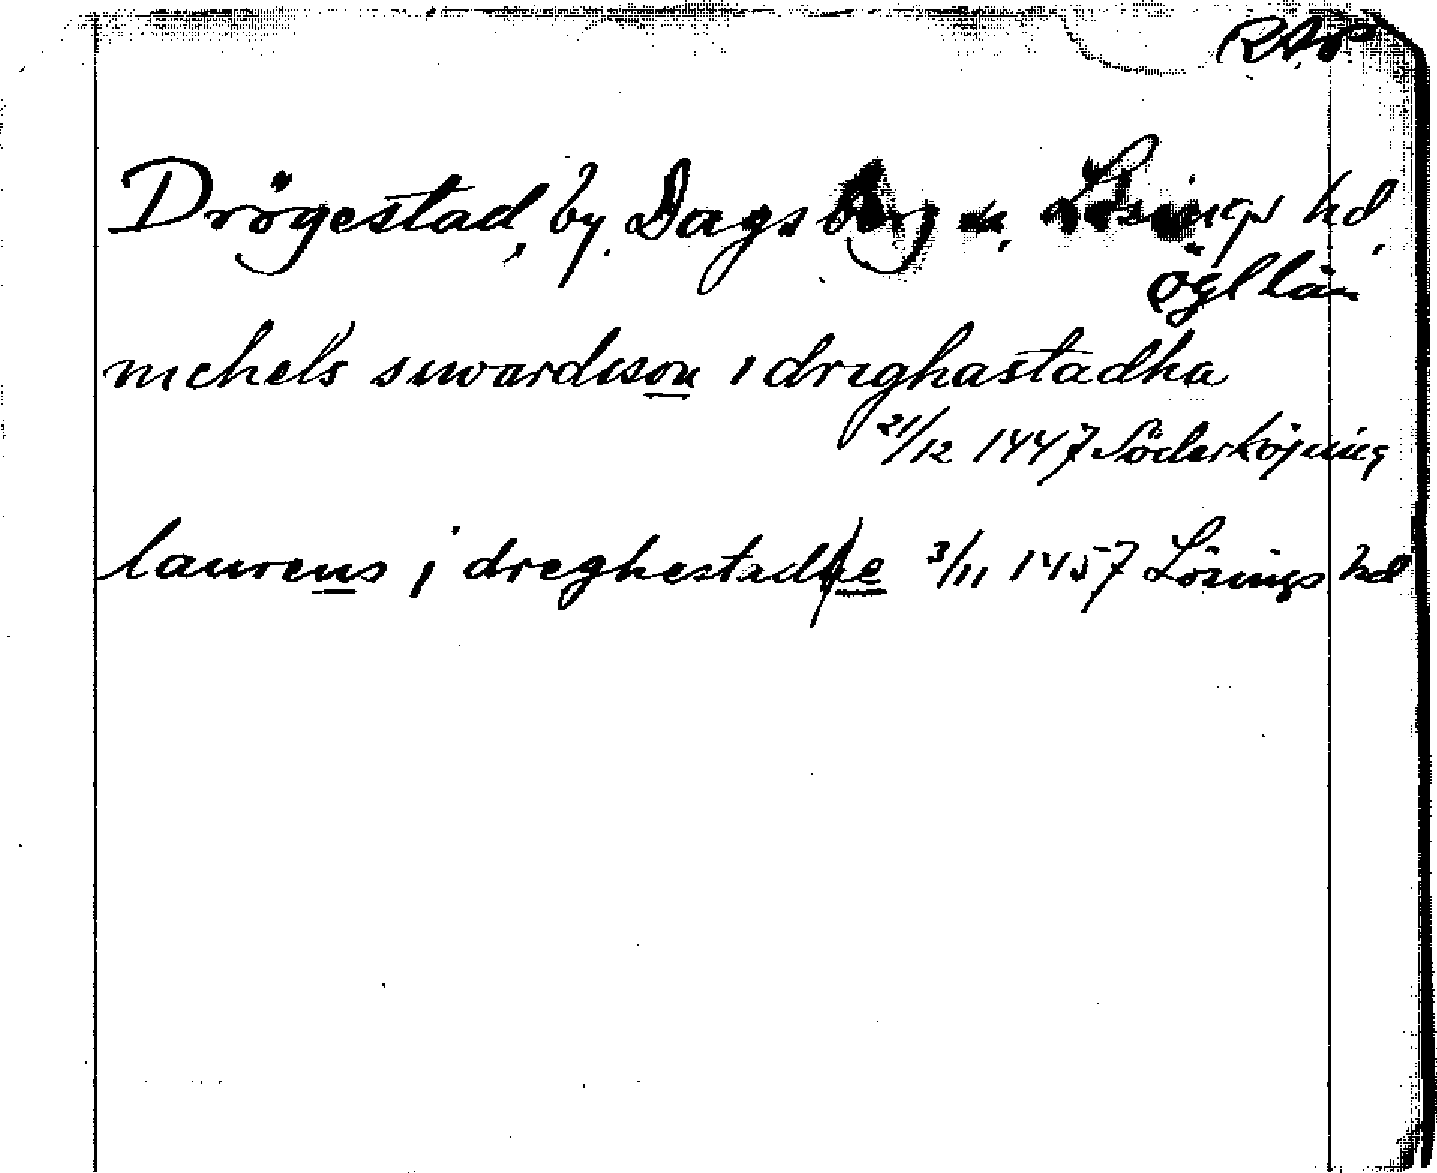 RAP
Drögestad, by, Dagsbergs sn, Lösings hd,
Ögl län
michels siwardsson i dreghastadha
21/12 1447 Söderköping
laurens j dreghestadhe 3/11 1457 Lösings hd